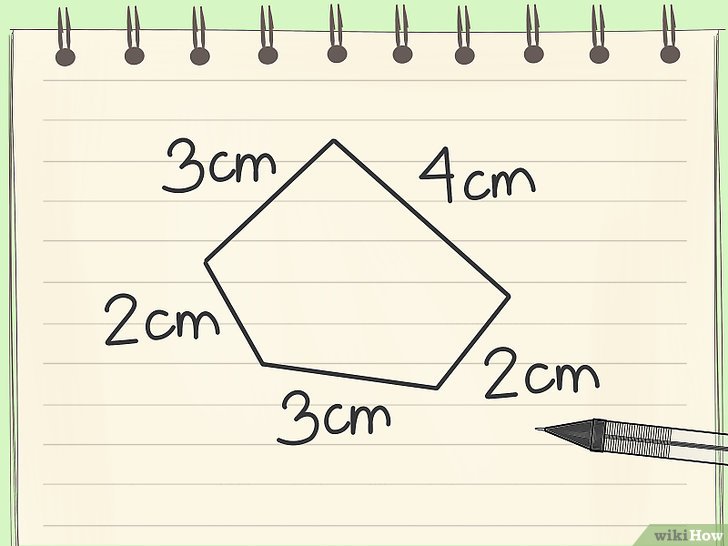 3cm
4cm
2cm
2cm
3cm
wikiHow